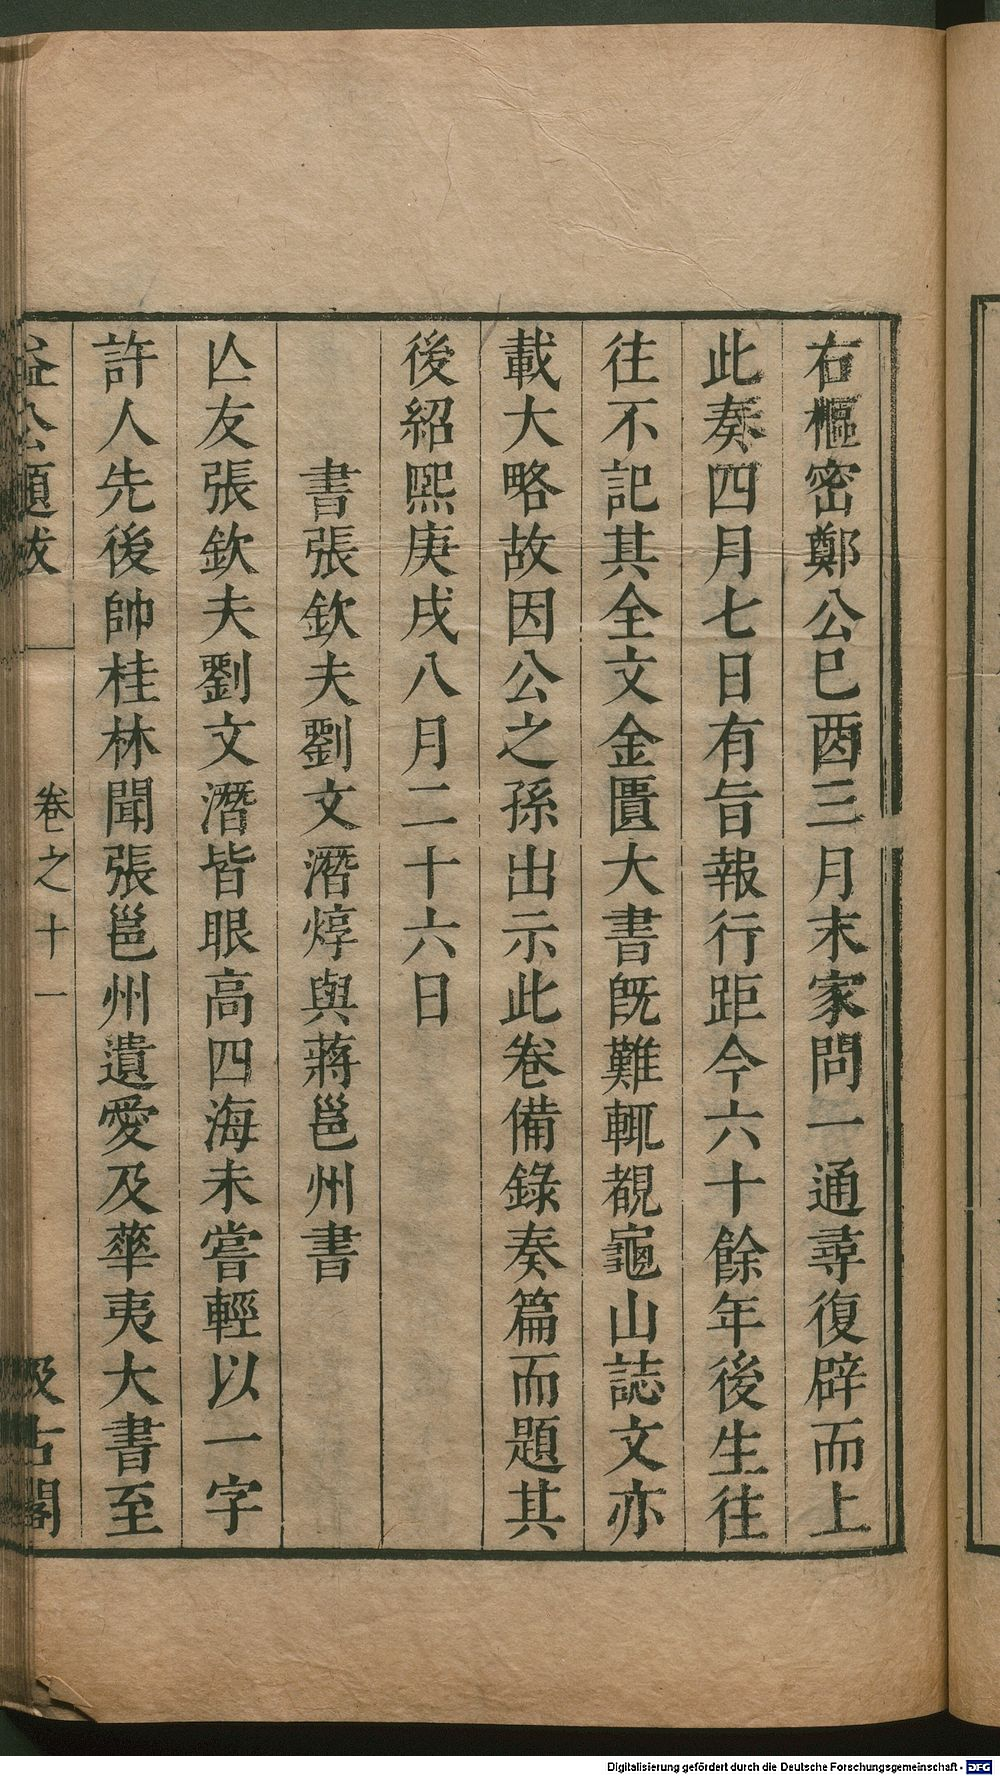 右樞密鄭公巳酉三月末家問一通尋復辟而上
此奏四月七日有旨報行距今六十餘年後生往
往不記其全文金匱大書旣難輒覩龜山誌文亦
載大略故因公之孫出示此卷備錄奏篇而題其
後紹熈庚戌八月二十六日
書張欽夫劉文潛焞與蔣邕州書
亾友張欽夫劉文潛皆眼高四海未嘗輕以一字
許人先後帥桂林聞張邕州遺愛及華夷大書至
益公題跋
卷之十一
汲古閣
Digitalisierung gefördert durch die Deutsche Forschungsgemeinschaft - DFG